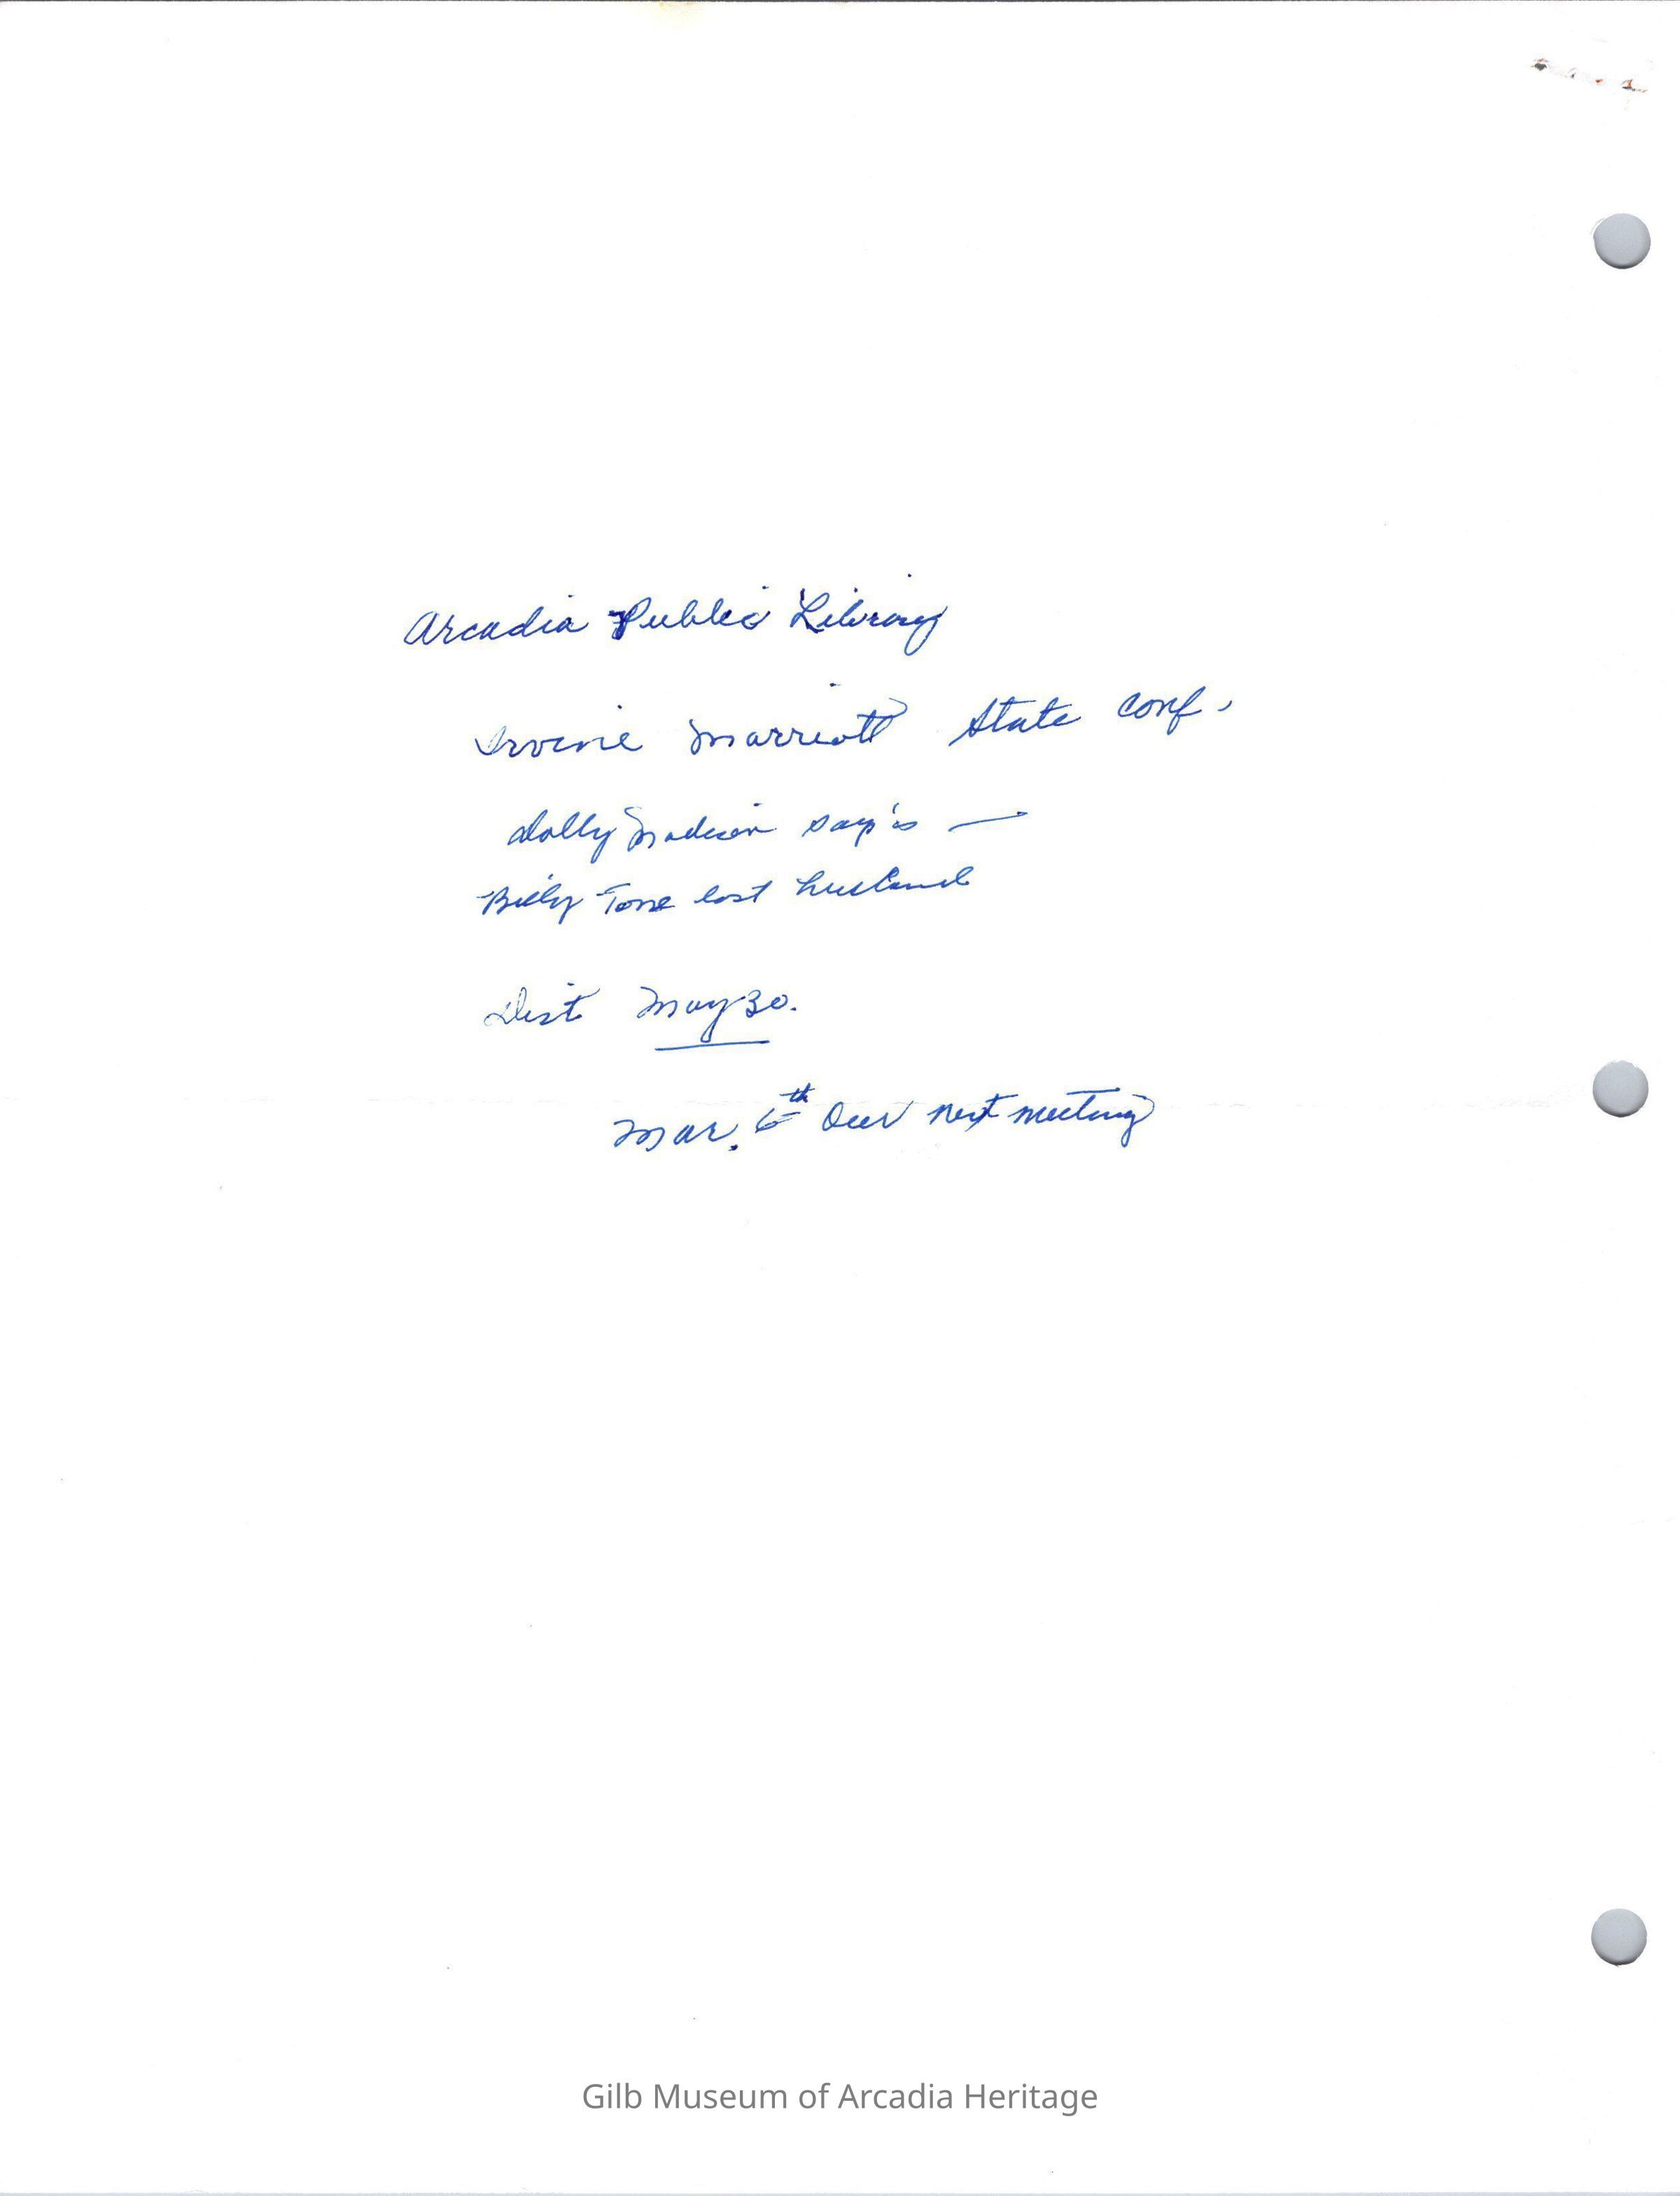 Arcadia Public Library
Irvine Marriott State Conf.
Dolly Madison say's —
Billy Tone lost husband
Dist May 30.
Mar. 6th Our next meeting
Gilb Museum of Arcadia Heritage